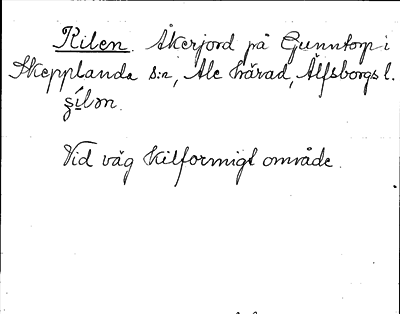 Kilen. Åkerjord på Gunntorp i
Skepplanda s:n, Ale härad, Älfsborgs l.
Vid väg kilformigt område.